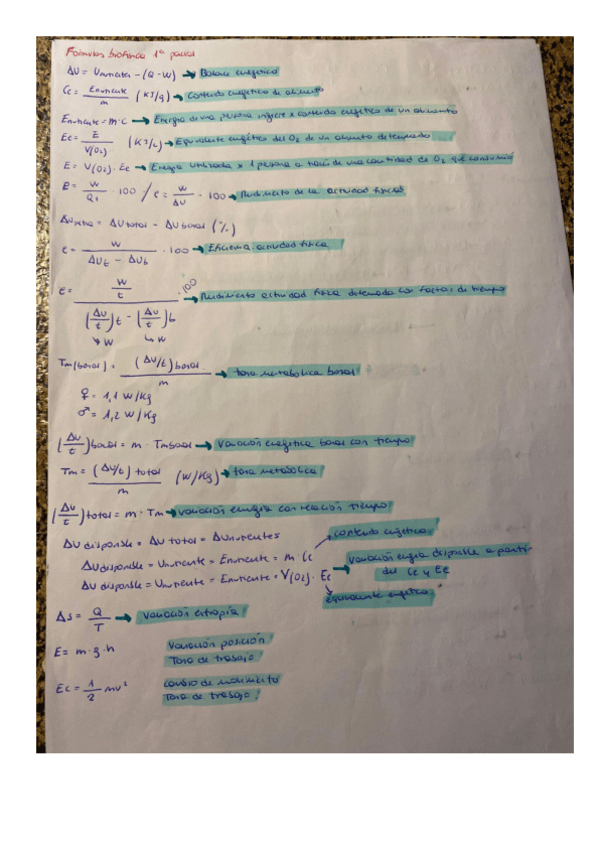 Fórmulas biofísica 1er parcial
ΔU = Unutrientes - (Q - W) → Balance energético
Cc = Enutriente / m (KJ/g) → Contenido energético de alimento
Enutriente = m·C → Energía de una persona ingiere x contenido energético de un alimento
Ec = E / V(O₂) (KJ/L) → Equivalente energético del O₂ de un alimento determinado
E = V(O₂) · Ec → Energía utilizada x 1 persona a través de una cantidad de O₂ que consumió
e = W / Q₁ · 100 / e = W / ΔU · 100 → Rendimiento de la actividad física
ΔUextra = ΔU total - ΔU basal (%)
e = W / ΔUt - ΔUb · 100 → Eficiencia actividad física
e = W/t / (ΔU/t)t - (ΔU/t)b · 100 → Rendimiento actividad física determinada por factor de tiempo
↳ W ↳ W
Tm(basal) = (ΔU/t) basal / m → tasa metabólica basal
♀ = 1,1 W/Kg
♂ = 1,2 W/Kg
(ΔU/t) basal = m · Tmbasal → Variación energética basal con tiempo
Tm = (ΔU/t) total / m (W/Kg) → tasa metabólica
(ΔU/t) total = m · Tm → Variación energía con relación tiempo
ΔU disponible = ΔU total = ΔUnutrientes
contenido energético
ΔUdisponible = Unutriente = Enutriente = m · Cc
ΔU disponible = Unutriente = Enutriente = V(O₂) · Ec → Variación energía disponible a partir
del Cc y Ee
equivalente energético
ΔS = Q / T → Variación entropía
E = m · g · h Variación posición
Tasa de trabajo
Ec = 1/2 mv² cambio de movimiento
Tasa de trabajo